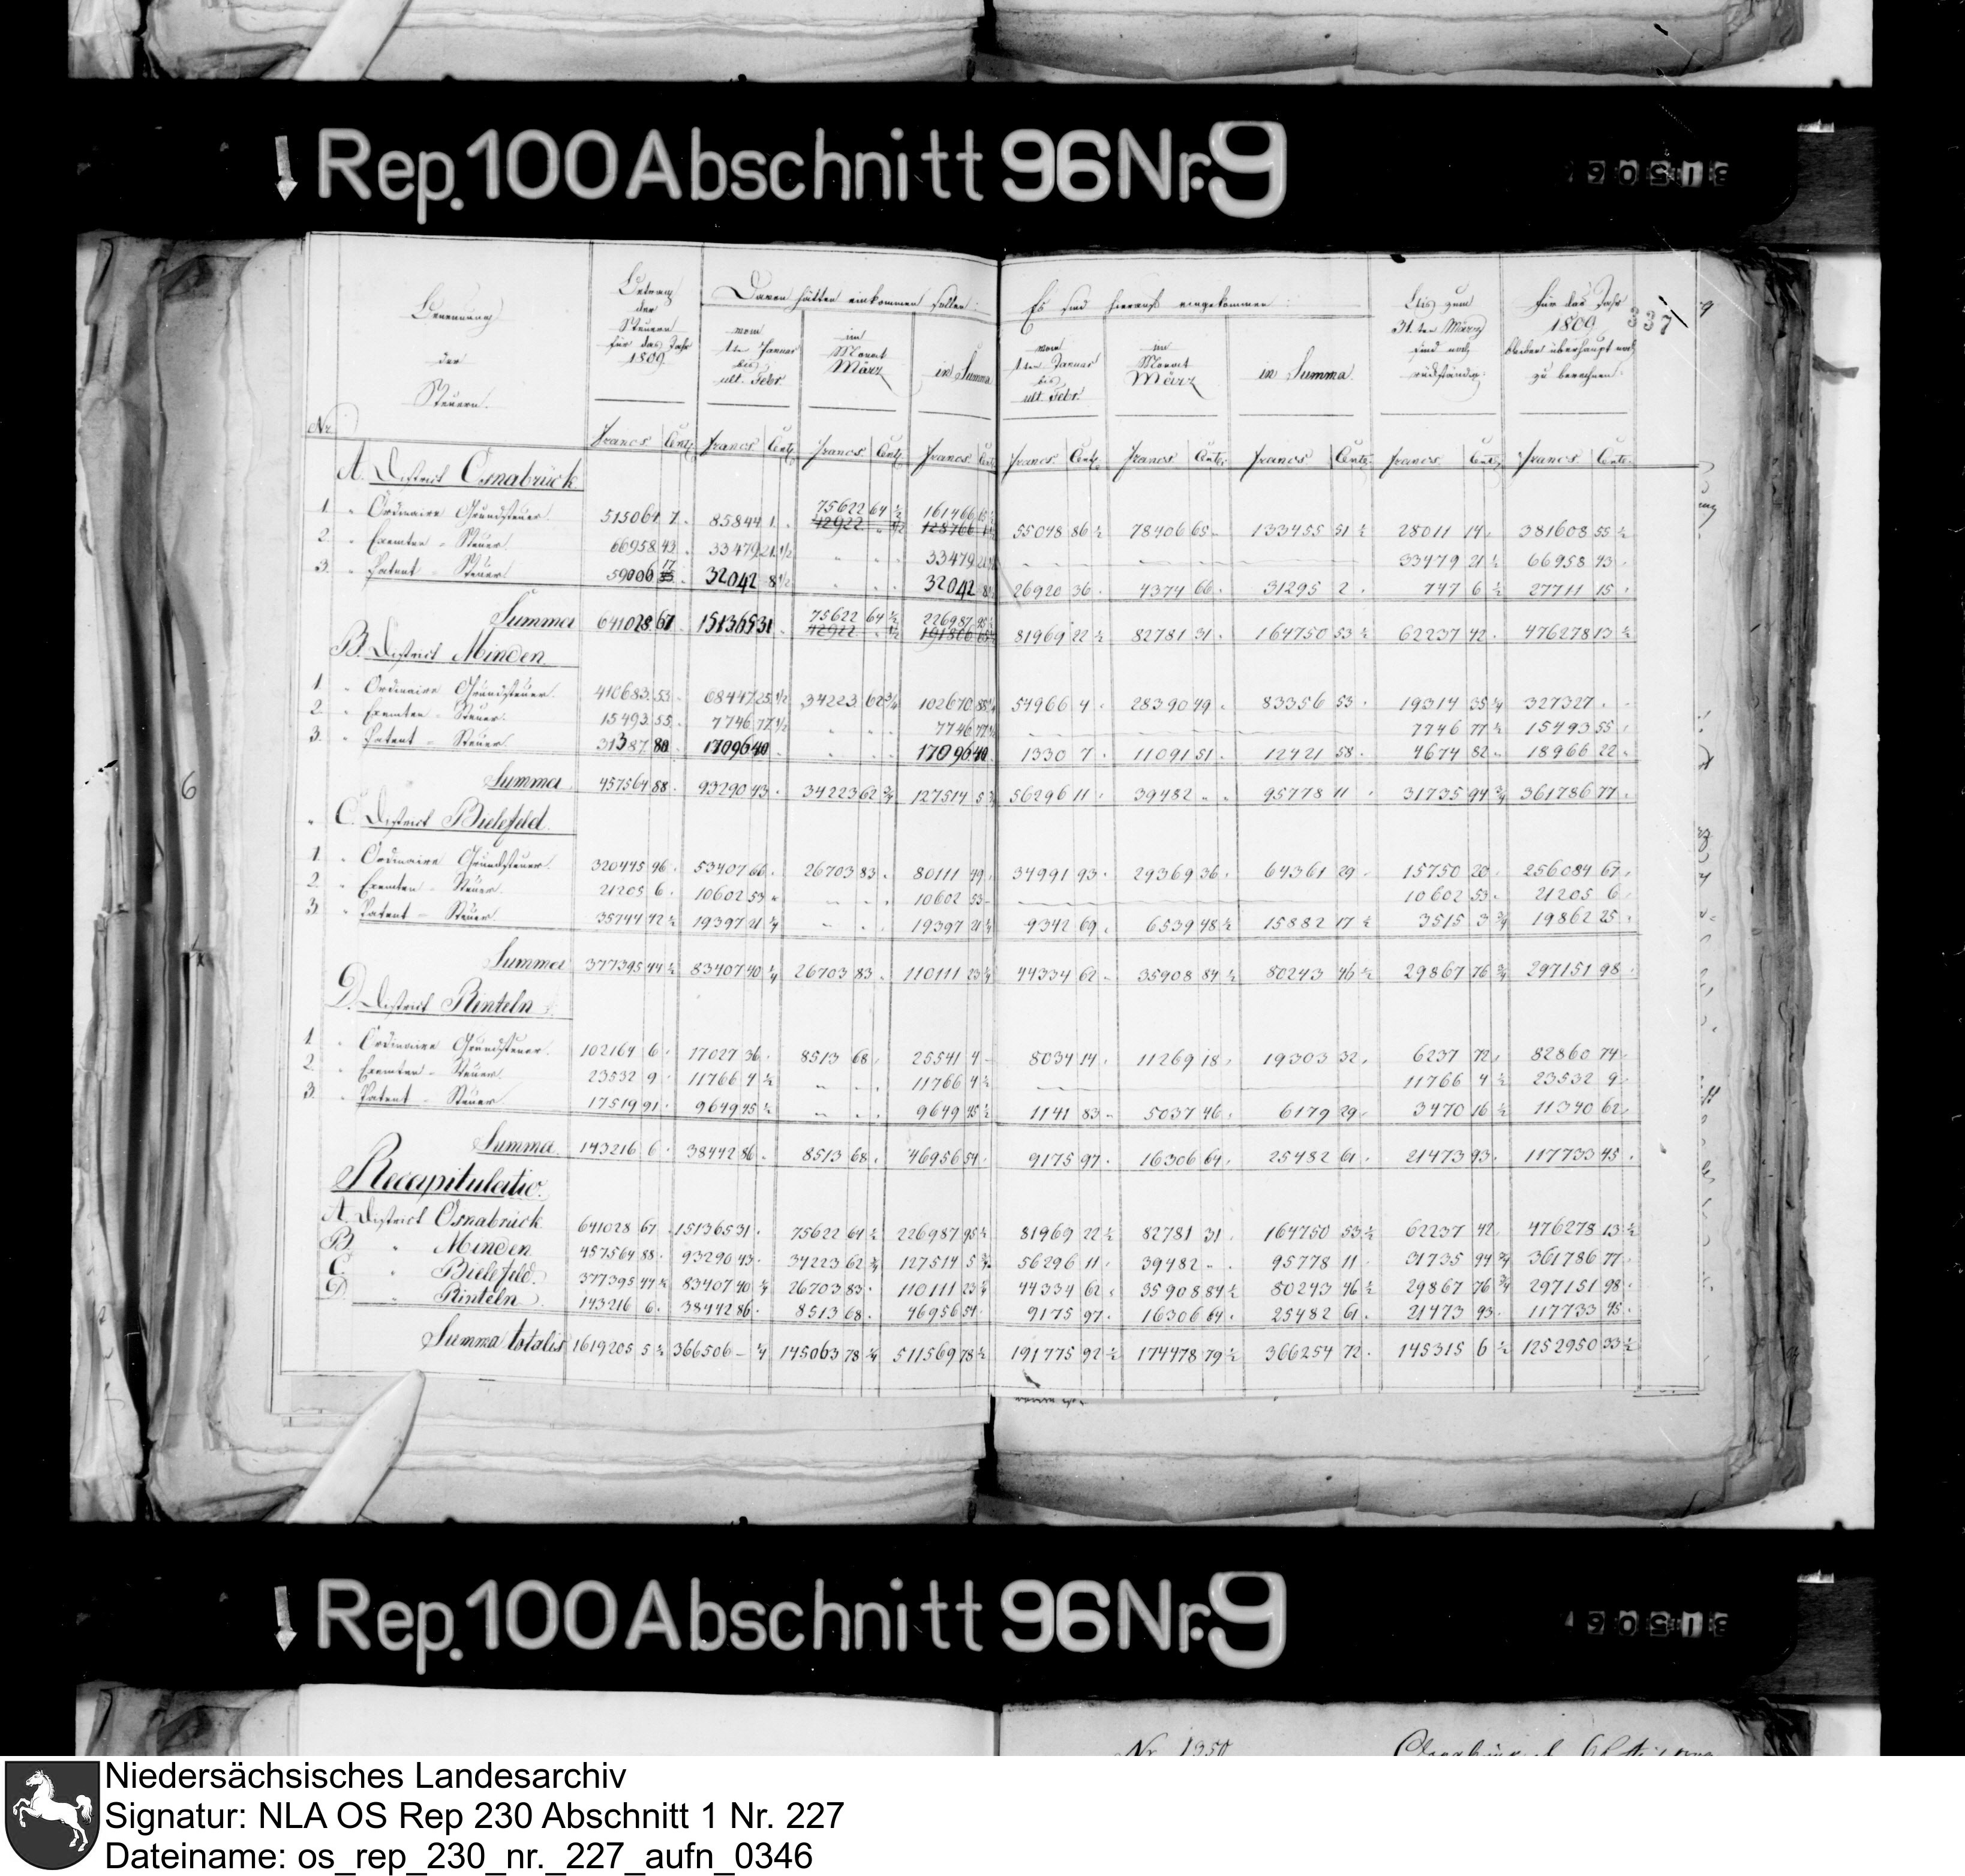 Rep. 100 Abschnitt 96 Nr. 9
31506
Benennung der Steuern.
Betrag der Steuern für das Jahr 1809.
Davon hätten einkommen sollen:
vom 1ten Januar bis ult. Febr.
im Monat März
in Summa
Es sind hierauf eingekommen:
vom 1ten Januar bis ult. Febr.
im Monat März
in Summa
Bis zum 31. ten März sind noch rückständig:
Für das Jahr 1809 bleiben überhaupt noch zu berechnen:
337
Nr. Francs Cent. Francs Cent. Francs Cent. Francs Cent. Francs Cent. Francs Cent. Francs Cent. Francs Cent. Francs Cent.
A. District Osnabrück
1. " Ordinaire Grundsteuer. 515064 7. 85844 1. 75622 64 ½ 161466 65 ½ 55048 86 ½ 78406 65 133455 51 ½ 28011 14 381608 55 ½
42922 ½ 128766
2. " Exemten-Steuer. 66958 43 33479 21 ½ 33479 21 ½ 33479 21 ½ 66958 43
3. " Patent-Steuer 59006 17 32042 8 ½ 32042 8 ½ 26920 36 4374 66 31295 2 747 6 ½ 27711 15
Summa 641028 67 151365 31 75622 64 ½ 226987 95 ½ 81969 22 ½ 82781 31 164750 53 ½ 62237 42 476278 13 ½
42922 ½
B. District Minden
1. " Ordinaire Grundsteuer. 410683 53 68447 25 ½ 34223 62 ¾ 102670 88 ¼ 54966 4 28390 49 83356 53 19314 35 ¼ 327327
2. " Exemten-Steuer. 15493 55 7746 77 ½ 7746 77 ½ 7746 77 ½ 15493 55
3. " Patent-Steuer. 31387 80 17096 40 17096 40 1330 7 11091 51 12421 58 4674 82 18966 22
Summa 457564 88 93290 43 34223 62 ¾ 127514 5 ¾ 56296 11 39482 95778 11 31735 94 ¾ 361786 77
C. District Bielefeld.
1. " Ordinaire Grundsteuer. 320445 96 53407 66 26703 83 80111 49 34991 93 29369 36 64361 29 15750 20 256084 67
2. " Exemten-Steuer. 21205 6 10602 53 10602 53 10602 53 21205 6
3. " Patent-Steuer. 35744 42 ½ 19397 21 ¼ 19397 21 ¼ 9342 69 6539 48 ½ 15882 17 ½ 3515 3 ¾ 19862 25
Summa 377395 44 ½ 83407 40 ¼ 26703 83 110111 23 ¼ 44334 62 35908 84 ½ 80243 46 ½ 29867 76 ¾ 297151 98
D. District Rinteln
1. " Ordinaire Grundsteuer. 102164 6 17027 36 8513 68 25541 4 8034 14 11269 18 19303 32 6237 72 82860 74
2. " Exemten-Steuer. 23532 9 11766 4 ½ 11766 4 ½ 11766 4 ½ 23532 9
3. " Patent-Steuer 17519 91 9649 45 ½ 9649 45 ½ 1141 83 5037 46 6179 29 3470 16 ½ 11340 62
Summa 143216 6 38442 86 8513 68 46956 54 9175 97 16306 64 25482 61 21473 93 117733 45
Recapitulatio.
A. District Osnabrück 641028 67 151365 31 75622 64 ½ 226987 95 ½ 81969 22 ½ 82781 31 164750 53 ½ 62237 42 476278 13 ½
B. " Minden 457564 88 93290 43 34223 62 ¾ 127514 5 ¾ 56296 11 39482 95778 11 31735 94 ¾ 361786 77
C. " Bielefeld. 377395 44 ½ 83407 40 ¼ 26703 83 110111 23 ¼ 44334 62 35908 84 ½ 80243 46 ½ 29867 76 ¾ 297151 98
D. " Rinteln. 143216 6 38442 86 8513 68 46956 54 9175 97 16306 64 25482 61 21473 93 117733 45
Summa totalis 1619205 5 ½ 366506 – ¼ 145063 78 ¼ 511569 78 ½ 191775 92 ½ 174478 79 ½ 366254 72 145315 6 ½ 1252950 33 ½
6
Rep. 100 Abschnitt 96 Nr. 9
31506
Nr. 1350
Niedersächsisches Landesarchiv
Signatur: NLA OS Rep 230 Abschnitt 1 Nr. 227
Dateiname: os_rep_230_nr._227_aufn_0346